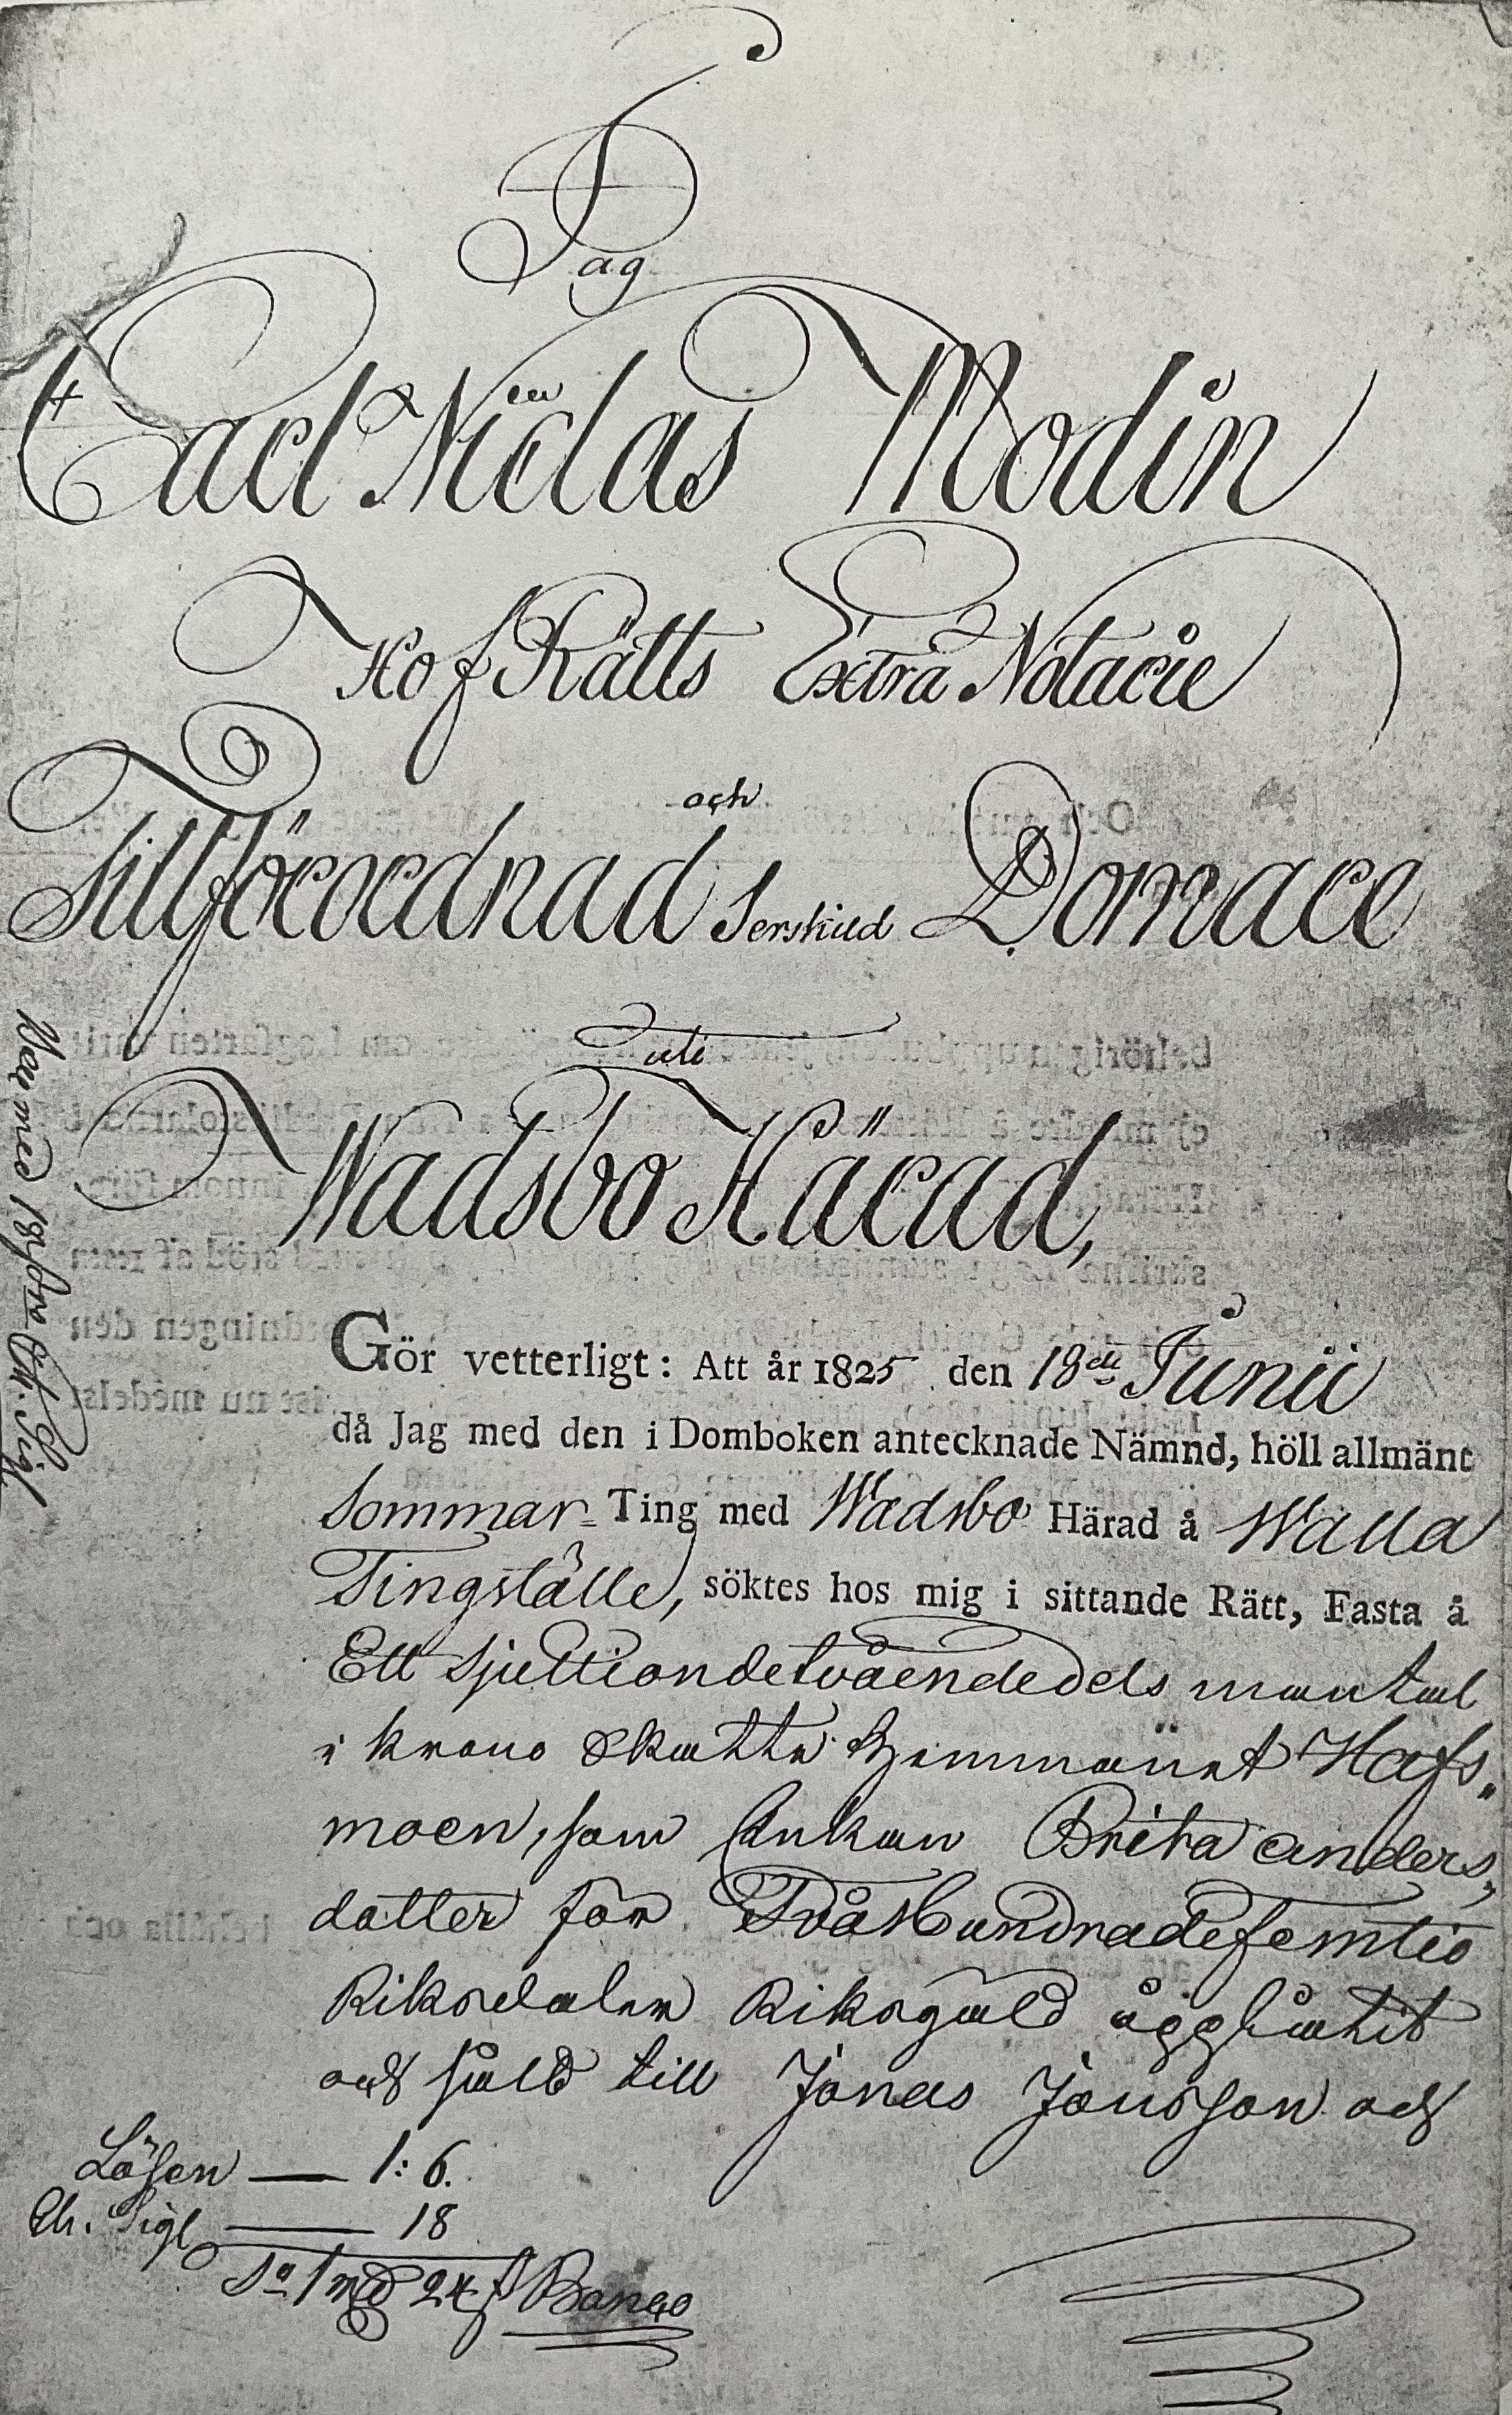 Jag
Carl Niclas Modin
HofRätts Extra Notarie
och
Tillförordnad Serskild Domare
uti
Wadsbo Härad,
Gör vetterligt: Att år 1825 den 18de Junii
då Jag med den i Domboken antecknade Nämnd, höll allmänt
Sommar= Ting med Wadsbo Härad å Walla
Tingställe, söktes hos mig i sittande Rätt, Fasta å
Ett sjuttiondetvåendedels mantal
i krono skatte hemmanet Hafs„
moen, som Enkan Brita anders„
dotter för TvåHundradefemtio
Riksdaler Riksgäld upplåtit
och såldt till Jonas Jonsson och
Lösen — 1: 6.
Ch. Sigl — 18
Sa 1 rd 24 s Banco
med 18 Ch. Sigl